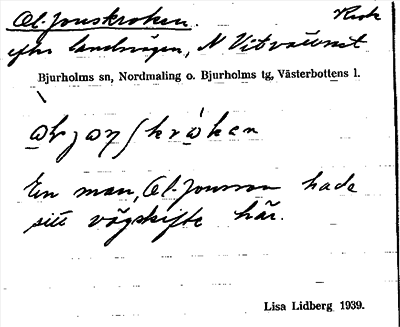 Ol. Jonskroken.
efter landvägen, N Vitvattnet
Bjurholms sn, Nordmaling o. Bjurholms tg, Västerbottens l.
En man, Ol. Jonsson hade
sitt vägskifte här.
Lisa Lidberg 1939.